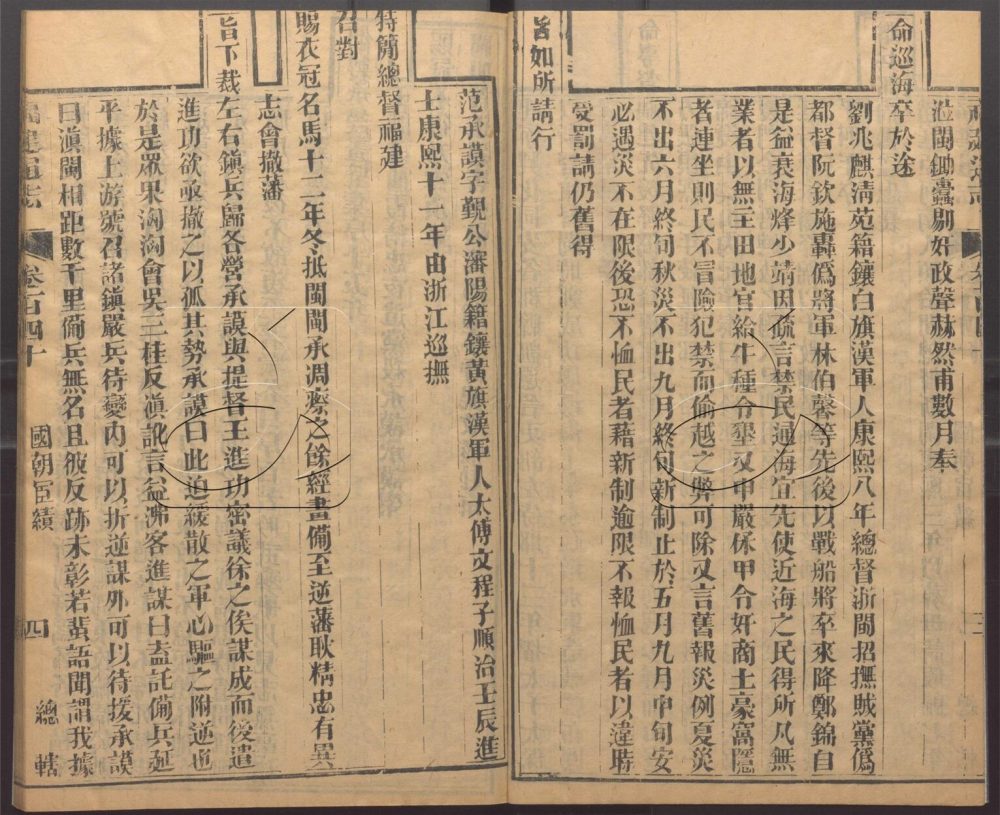 蒞閩鋤蠹剔奸政聲赫然甫數月奉
命巡海卒於途
劉兆麒淸苑籍鑲白旗漢軍人康熙八年總督浙閩招撫賊黨僞
都督阮欽施轟僞將軍林伯馨等先後以戰船將卒來降鄭錦自
是益衰海烽少靖因疏言禁民通海宜先使近海之民得所凡無
業者以無主田地官給牛種令墾又申嚴保甲令奸商土豪窩隱
者連坐則民不冒險犯禁而偷越之弊可除又言舊報災例夏災
不出六月終旬秋災不出九月終旬新制止於五月九月中旬安
必遇災不在限後恐不恤民者藉新制逾限不報恤民者以違時
受罰請仍舊得
旨如所請行
范承謨字覲公瀋陽籍鑲黃旗漢軍人太傅文程子順治壬辰進
士康熙十一年由浙江巡撫
特簡總督福建
召對
賜衣冠名馬十二年冬抵閩閩承凋瘵之餘經畫備至逆藩耿精忠有異
志會撤藩
旨下裁左右鎭兵歸各營承謨與提督王進功密議徐之俟謀成而後遣
進功欲亟撤之以孤其勢承謨曰此迫緩散之軍心驅之附逆也
於是眾果洶洶會吳三桂反滇訛言益沸客進謀曰盍託備兵延
平據上游號召諸鎭嚴兵待變內可以折逆謀外可以待援承謨
曰滇閩相距數千里備兵無名且彼反跡未彰若蜚語聞謂我據
福建通志 卷百四十 國朝宦績 四 總轄